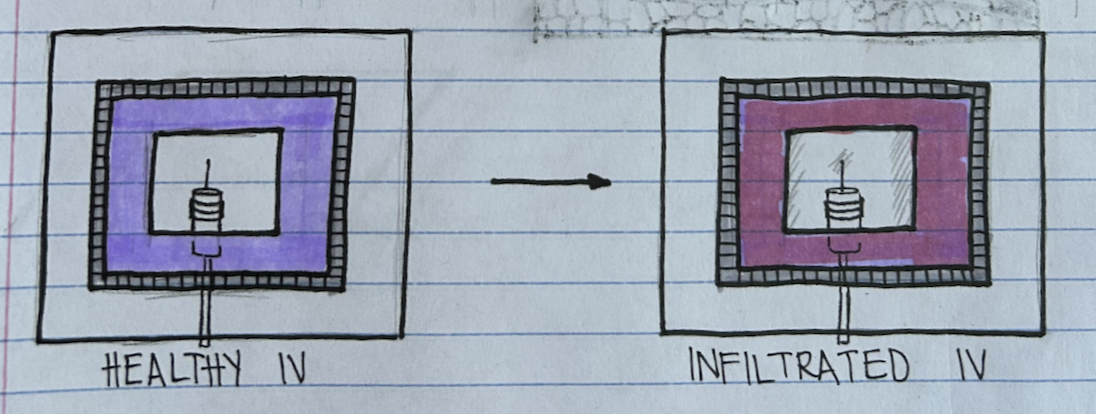 HEALTHY IV
INFILTRATED IV